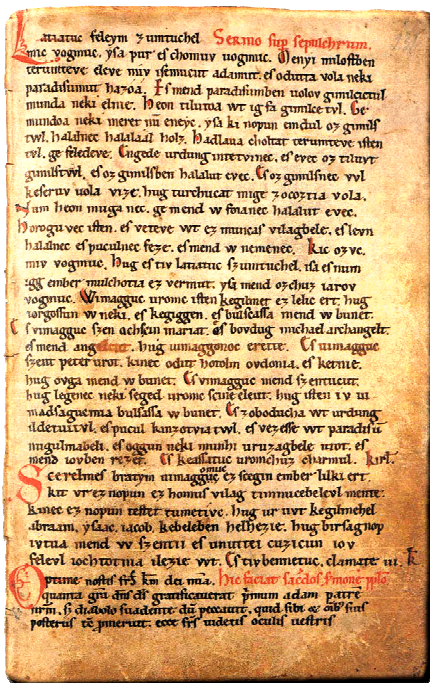 Latiatuc feleym zumtuchel Sermo sup sepulchrum.
mic vogmuc. yſa pur eſ chomuv uogmuc. Menyi miloſtben
terumteve eleve miv iſemucut adamut. eſ odutta vola neki
paradiſumut hazoa. Eſ mend paradiſumben uolov gimilcictul
munda neki elnie. Heon tilutoa wt ig fa gimilce tvl. Ge
mundoa neki meret nū eneyc. yſa ki nopun emdul oz gimilſ
twl. halalnec halalaal holz. Hadlaua choltat terumteve iſten
tvl. ge feledeve. Engede urdung intetvinec. eſ evec oz tiluvt
gimilſtwl. eſ oz gimilſben halalut evec. Eſ oz gimilſnec vvl
keſeruv uola vize. hug turchucat mige zocoztia vola.
Num heon muga nec. ge mend w foianec halalut evec.
Horogu vec iſten. eſ veteve wt ez muncaſ vilagbele. eſ levn
halalnec eſ puculnec feze. eſ mend w nemenec. Kic ozvc.
miv vogmuc. Hug eſ tiv latiatuc szumtuchel. iſa eſ num
igg ember mulchotia ez vermut. yſa mend ozchuz iarov
vogmuc. Wimagguc uromc iſten kegilmet ez lelic ert. hug
iorgoſſun w neki. eſ kegiggen. eſ bulſaſſa mend w bunet.
Eſ vimagguc szen achſcin mariat. eſ bovdug michael archangelt.
eſ mend angelcut. hug uimaggonoc erette. Eſ uimagguc
szent peter urot. kinec odut hotolm ovdonia. eſ ketnie.
hug ovga mend w bunet. Eſ vimagguc mend szentucut.
hug legenec neki seged uromc scine eleut. hug iſten iv ui
madſaguc mia bulſaſſa w bunet. Eſ zoboducha wt urdung
ildetuitvl. eſ pucul kinzotviatwl. eſ vezeſſe wt paradiſu
nugulmabeli. eſ oggun neki munhi uruzagbele utot. eſ
mend iovben rezet. Eſ keaſſatuc uromchuz charmul. Kirl.
Scerelmes bratym uimagguc omuc ez scegin ember lilki ert.
kit vr ez nopun ez homuſ vilag timnucebelevl mente.
kinec ez nopun teſtet tumetivc. hug ur uvt kegilmehel
abraam. yſaac. iacob. kebeleben helhezie. hug birſagnop
ivtva mend w szentii eſ unuttei cuzicun iov
felevl iochtotnia ilezie wt. Eſ tivbennetuc. clamate iii. k
Hic faciat sac̄dos s̄monē pp̄lo.
quanta grā dn̄s dſ̄ gratificauerat p̄mum adam patrē
nr̄m. ſ; diabolo suadente dū peccauit. quid sibi
posteris ecce fr̄s videtis oculis vestris